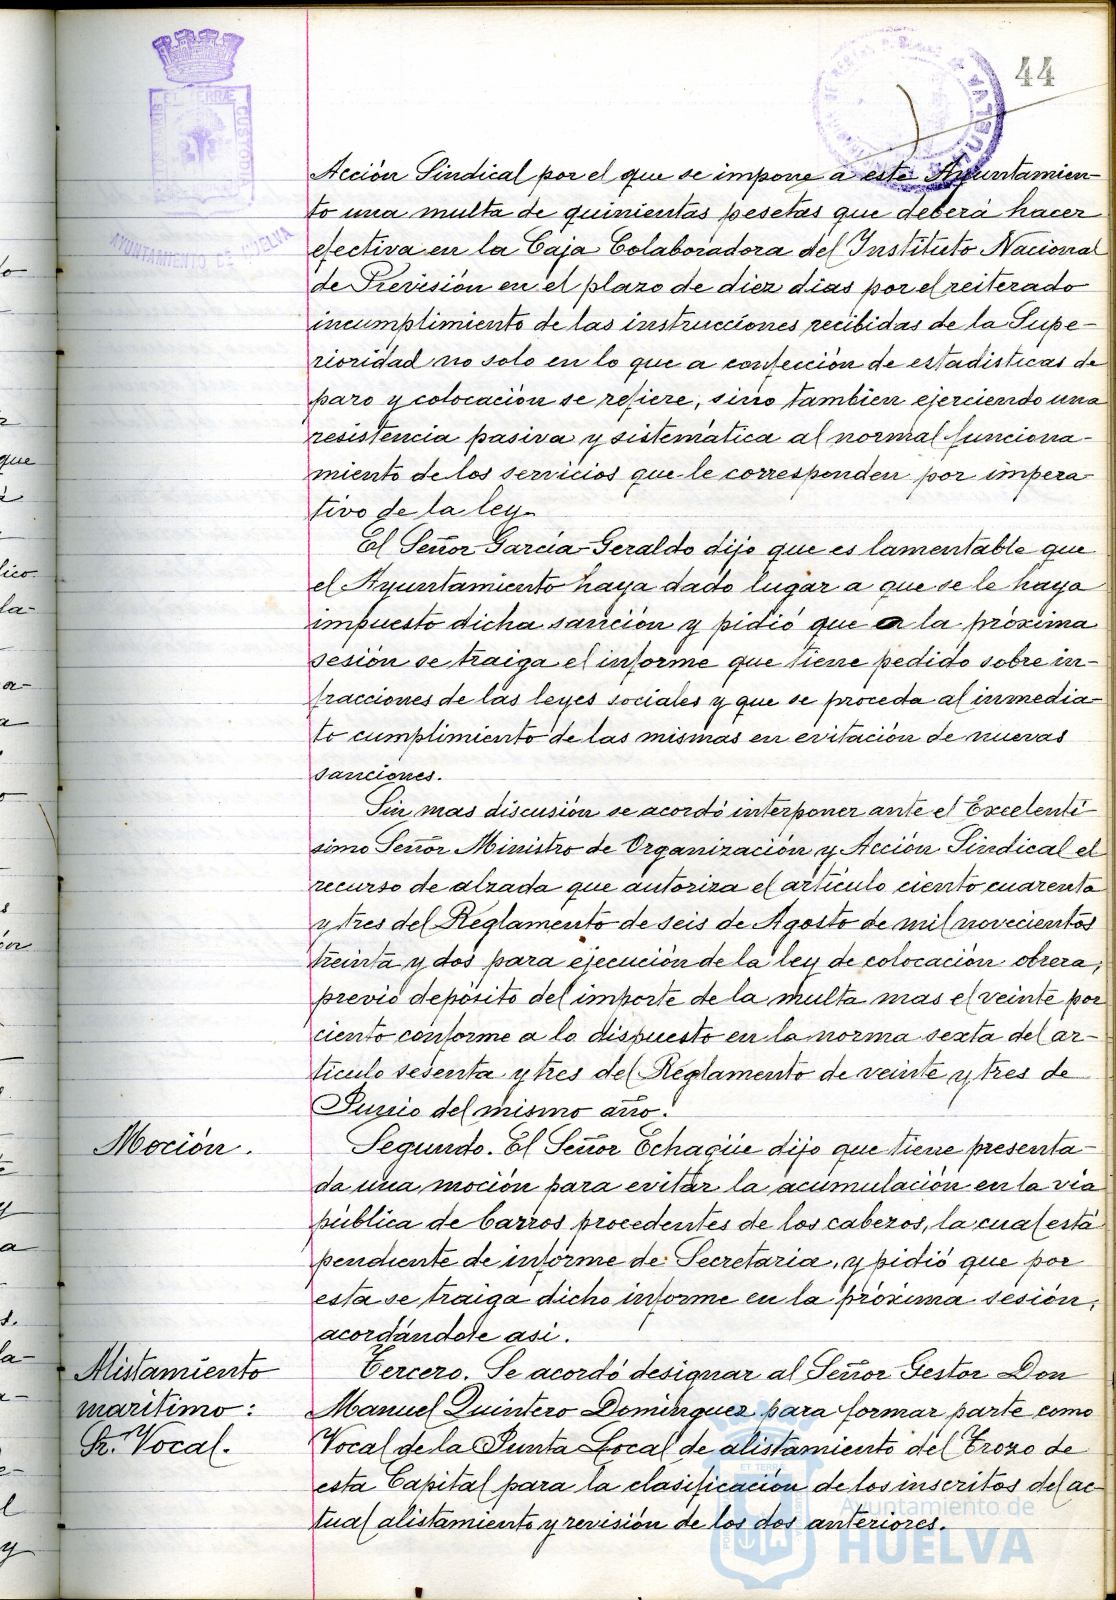 44
ET TERRÆ
CUSTODIA
AYUNTAMIENTO DE HUELVA
HUELVA
Acción Sindical por el que se impone a este Ayuntamien-
to una multa de quinientas pesetas que deberá hacer
efectiva en la Caja Colaboradora del Instituto Nacional
de Previsión en el plazo de diez dias por el reiterado
incumplimiento de las instrucciones recibidas de la Supe-
rioridad no solo en lo que a confección de estadisticas de
paro y colocación se refiere, sino tambien ejerciendo una
resistencia pasiva y sistemática al normal funciona-
miento de los servicios que le corresponden por impera-
tivo de la ley.
El Señor García-Geraldo dijo que es lamentable que
el Ayuntamiento haya dado lugar a que se le haya
impuesto dicha sanción y pidió que a la próxima
sesión se traiga el informe que tiene pedido sobre in-
fracciones de las leyes sociales y que se proceda al inmedia-
to cumplimiento de las mismas en evitación de nuevas
sanciones.
Sin mas discusión se acordó interponer ante el Excelentí-
simo Señor Ministro de Organización y Acción Sindical el
recurso de alzada que autoriza el artículo ciento cuarenta
y tres del Reglamento de seis de Agosto de mil novecientos
treinta y dos para ejecución de la ley de colocación obrera,
previo depósito del importe de la multa mas el veinte por
ciento conforme a lo dispuesto en la norma sexta del ar-
tículo sesenta y tres del Reglamento de veinte y tres de
Junio del mismo año.
Moción.
Segundo. El Señor Echagüe dijo que tiene presenta-
da una moción para evitar la acumulación en la vía
pública de barros procedentes de los cabezos, la cual está
pendiente de informe de Secretaria, y pidió que por
esta se traiga dicho informe en la próxima sesión,
acordándose así.
Alistamiento
marítimo:
Sr. Vocal.
Tercero. Se acordó designar al Señor Gestor Don
Manuel Quintero Dominguez para formar parte como
Vocal de la Junta Local de alistamiento del Trozo de
esta Capital para la clasificación de los inscritos del ac-
tual alistamiento y revisión de los dos anteriores.
Ayuntamiento de
HUELVA